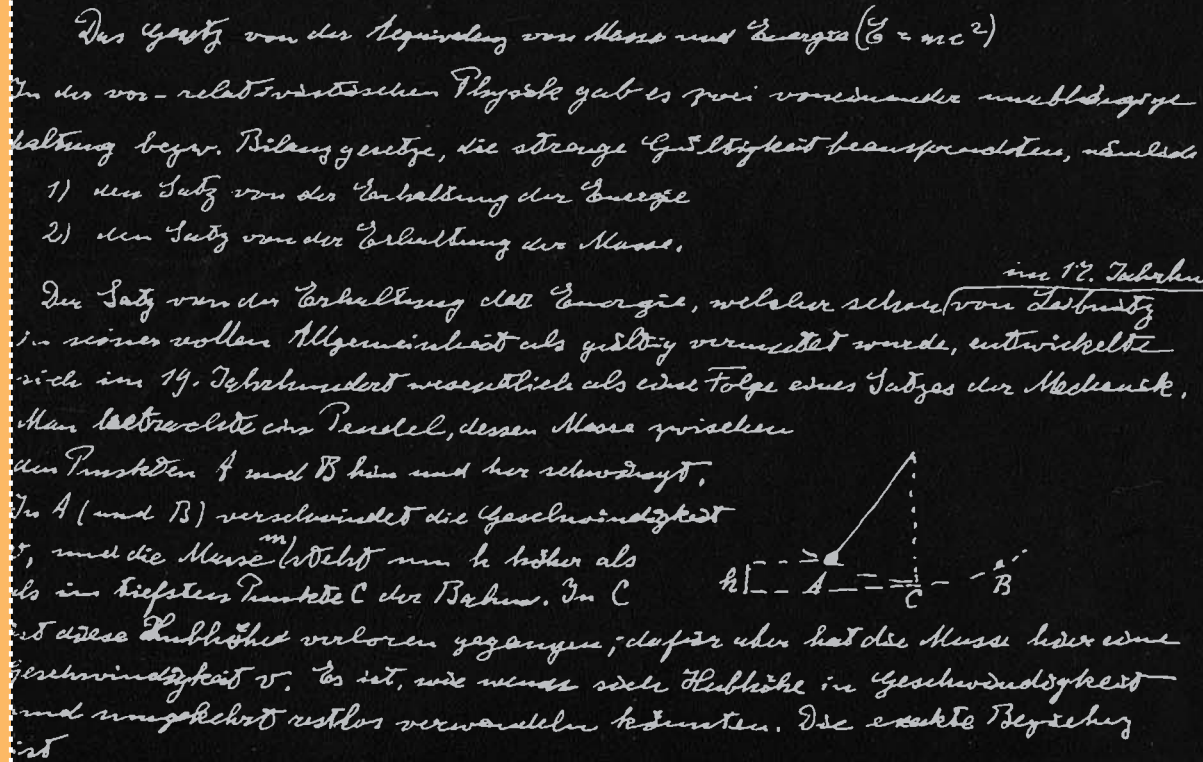 Das Gesetz von der Aequivalenz von Masse und Energie (E = mc²)
In der vor-relativistischen Physik gab es zwei voneinander unabhängige
haltung bezw. Bilanzgesetze, die strenge Gültigkeit beanspruchten, nämlich
1) den Satz von der Erhaltung der Energie
2) den Satz von der Erhaltung der Masse.
im 17. Jahrhu
Der Satz von der Erhaltung der Energie, welcher schon von Leibnitz
in seiner vollen Allgemeinheit als gültig vermutet wurde, entwickelte
sich im 19. Jahrhundert wesentlich als eine Folge eines Satzes der Mechanik.
Man betrachte ein Pendel, dessen Masse zwischen
den Punkten A und B hin und her schwingt.
In A (und B) verschwindet die Geschwindigkeit
v, und die Masse m steht um h höher als
als im tiefsten Punkte C der Bahn. In C
h A C B
ist diese Hubhöhe verloren gegangen; dafür aber hat die Masse hier eine
Geschwindigkeit v. Es ist, wie wenn sich Hubhöhe in Geschwindigkeit
und umgekehrt restlos verwandeln könnten. Die exakte Beziehung
ist